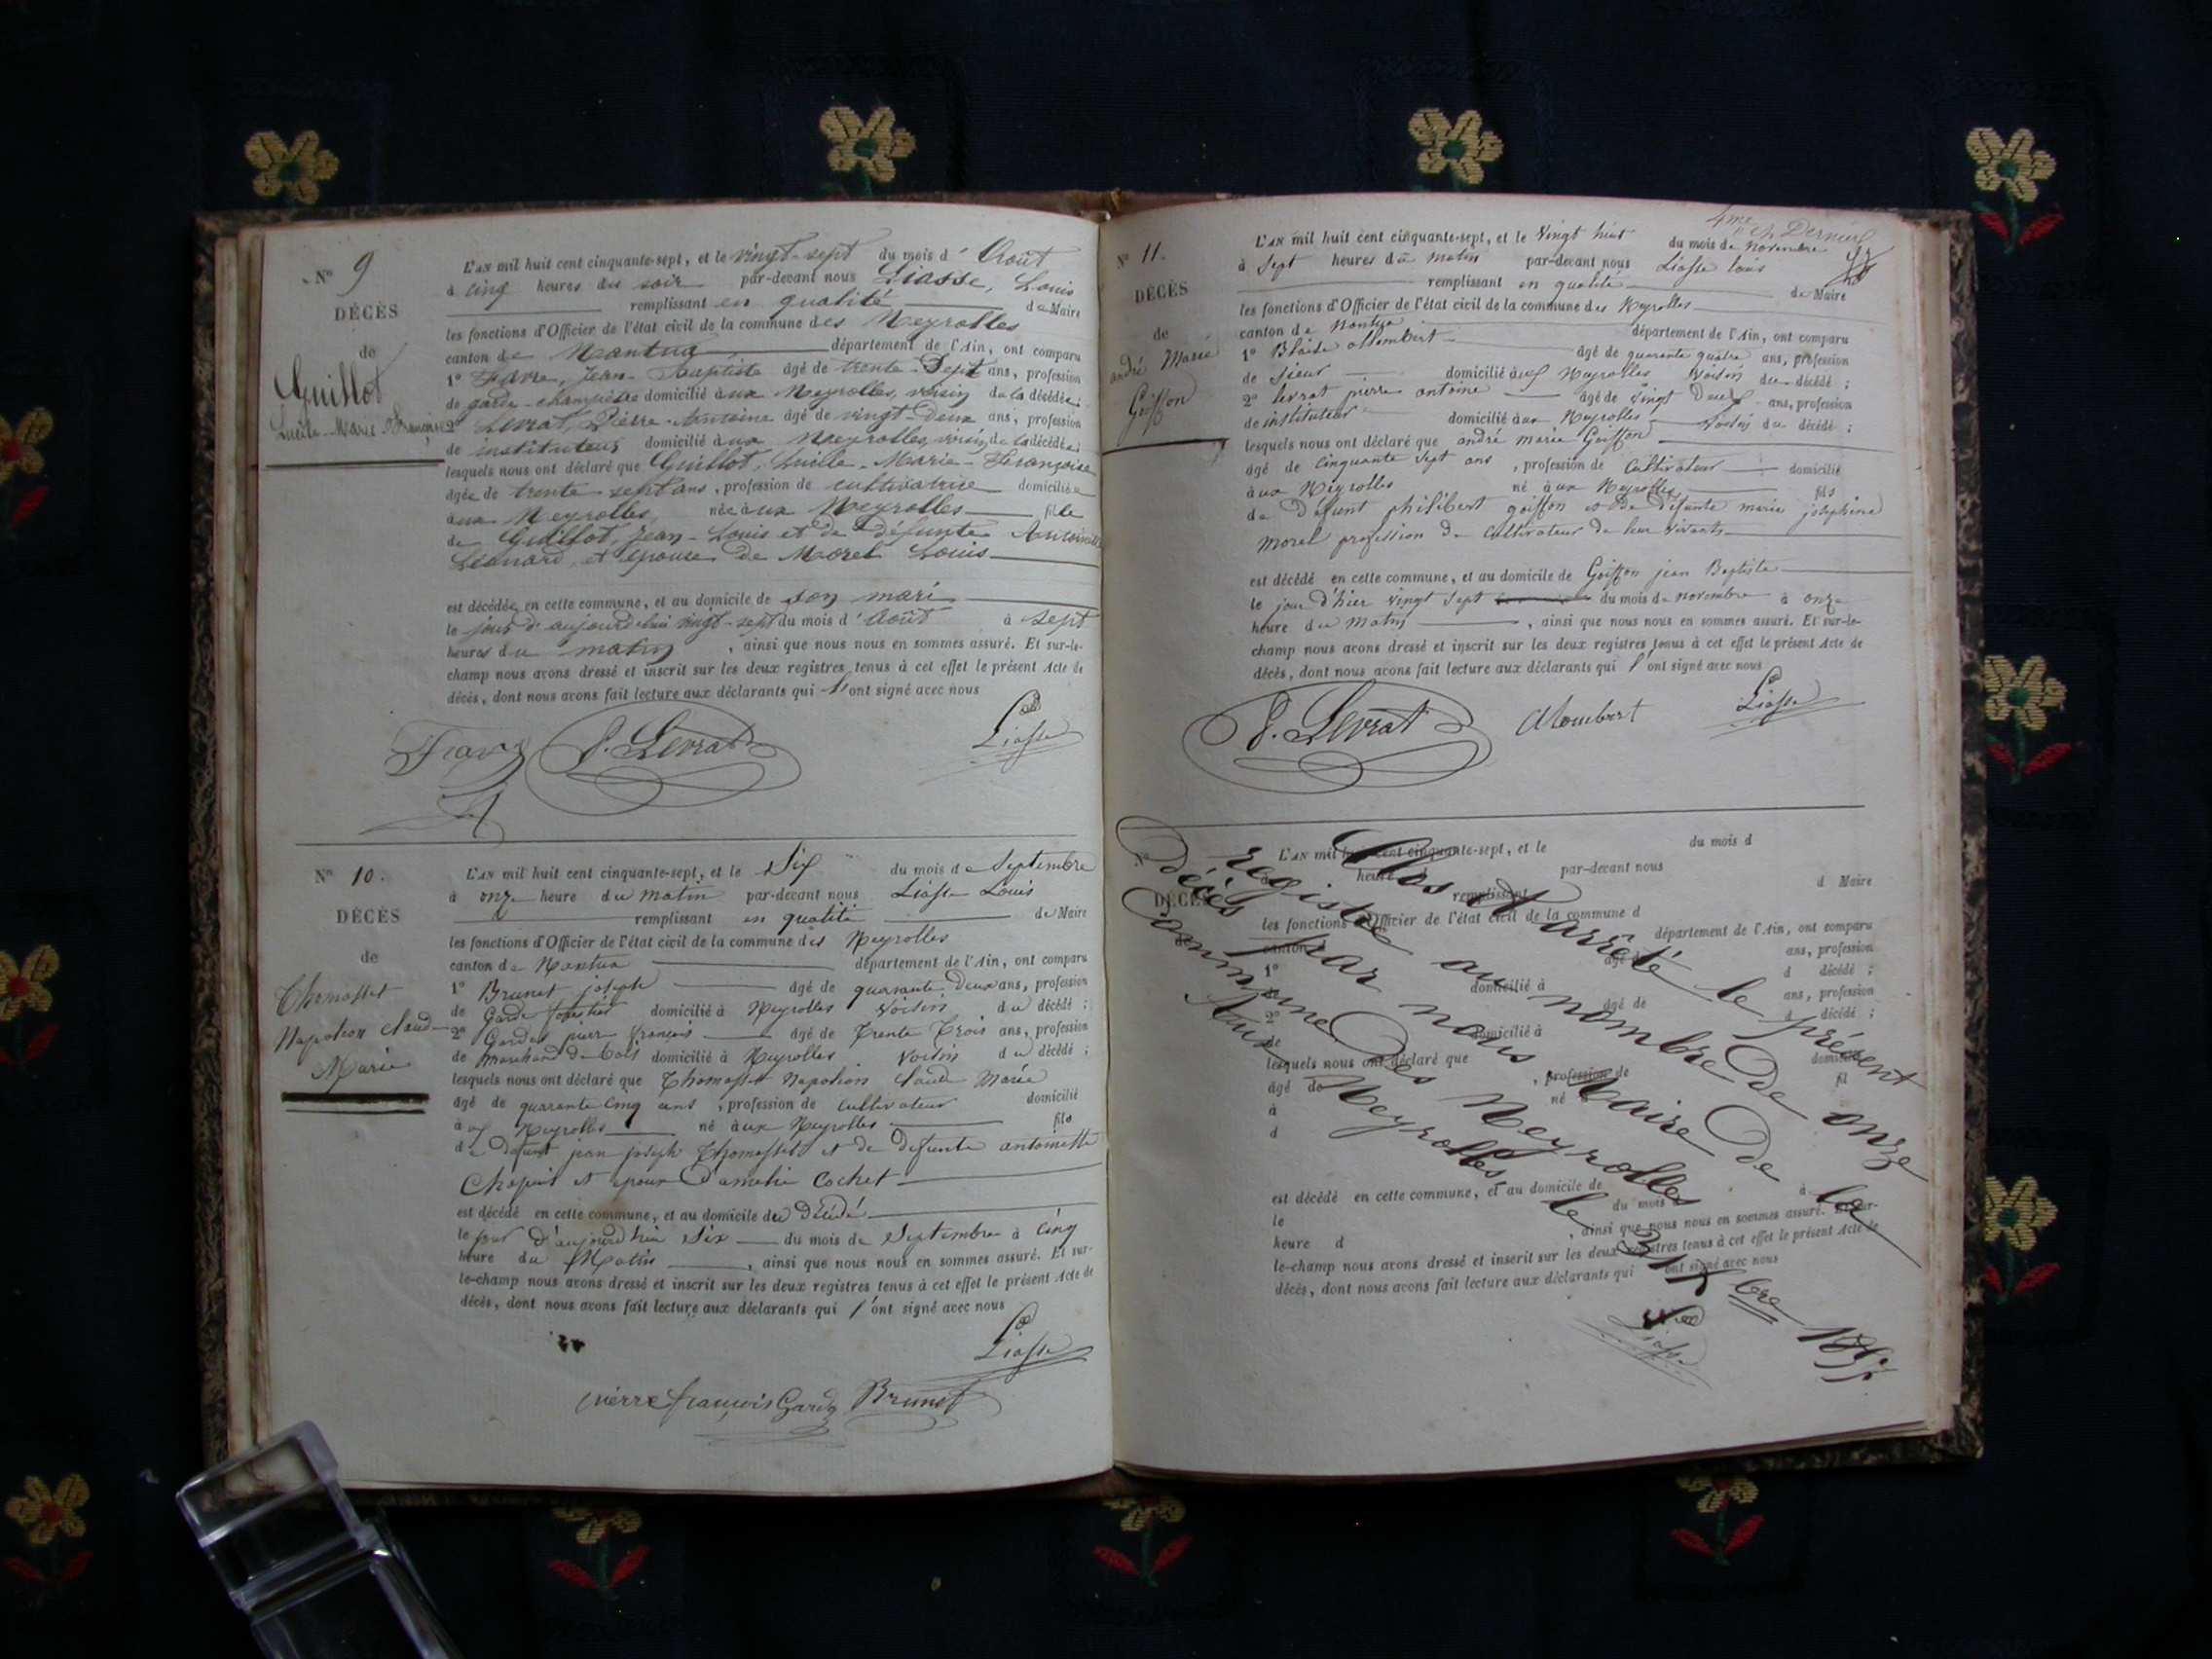 N° 9
DÉCÈS
de
Guillot
Lucile-Marie-Françoise
L'AN mil huit cent cinquante-sept, et le vingt-sept du mois d'Août
à cinq heures du soir par-devant nous Liasse, Louis
remplissant en qualité de Maire
les fonctions d'Officier de l'état civil de la commune des Neyrolles
canton de Nantua département de l'Ain, ont comparu
1° Favre, Jean-Baptiste âgé de trente-sept ans, profession
de garde-champêtre domicilié aux Neyrolles, voisin de la décédée;
2° Levrat, Pierre-Antoine âgé de vingt-deux ans, profession
de instituteur domicilié aux Neyrolles, voisin de la décédée;
lesquels nous ont déclaré que Guillot, Lucile-Marie-Françoise
âgée de trente-sept ans, profession de cultivatrice domiciliée
aux Neyrolles, née aux Neyrolles fille
de Guillot, Jean-Louis et de défunte Antoinette
Léonard, et épouse de Morel Louis
est décédée en cette commune, et au domicile de son mari
le jour d'aujourd'hui vingt-sept du mois d'Août à sept
heures du matin, ainsi que nous nous en sommes assuré. Et sur-le-
champ nous avons dressé et inscrit sur les deux registres tenus à cet effet le présent Acte de
décès, dont nous avons fait lecture aux déclarants qui l'ont signé avec nous
Favre P. Levrat Liasse
N° 10.
DÉCÈS
de
Thomasset
Napoléon Claude
Marie
L'AN mil huit cent cinquante-sept, et le Six du mois de Septembre
à onze heure du matin par-devant nous Liasse Louis
remplissant en qualité de Maire
les fonctions d'Officier de l'état civil de la commune des Neyrolles
canton de Nantua département de l'Ain, ont comparu
1° Brunet joseph âgé de quarante deux ans, profession
de Garde forestier domicilié à Neyrolles Voisin du décédé;
2° Gardas pierre françois âgé de Trente Trois ans, profession
de marchand de bois domicilié à Neyrolles Voisin du décédé;
lesquels nous ont déclaré que Thomasset Napoléon Claude Marie
âgé de quarante cinq ans, profession de cultivateur domicilié
aux Neyrolles né aux Neyrolles fils
de défunt jean joseph Thomasset et de défunte antoinette
et époux d'amélie Cochet
est décédé en cette commune, et au domicile du Décédé
le jour d'aujourd'hui Six du mois de Septembre à cinq
heure du Matin, ainsi que nous nous en sommes assuré. Et sur-
le-champ nous avons dressé et inscrit sur les deux registres tenus à cet effet le présent Acte de
décès, dont nous avons fait lecture aux déclarants qui l'ont signé avec nous
Liasse
pierre françois Brunet
4me et Dernier
N° 11.
DÉCÈS
de
andré Marie
Goiffon
L'AN mil huit cent cinquante-sept, et le Vingt huit du mois de Novembre
à Sept heures du matin par-devant nous Liasse louis
remplissant en qualité de Maire
les fonctions d'Officier de l'état civil de la commune des Neyrolles
canton de Nantua département de l'Ain, ont comparu
1° Blaise allombert âgé de quarante quatre ans, profession
de domicilié aux Neyrolles Voisin du décédé;
2° levrat pierre antoine âgé de vingt Deux ans, profession
de instituteur domicilié aux Neyrolles Voisin du décédé;
lesquels nous ont déclaré que andré marie Goiffon
âgé de Cinquante Sept ans, profession de Cultivateur domicilié
aux Neyrolles né aux Neyrolles fils
de Défunt philibert goiffon et de défunte marie joséphine
morel profession de Cultivateur de leur vivants
est décédé en cette commune, et au domicile de Goiffon jean Baptiste
le jour d'hier vingt Sept du mois de novembre à onze
heure du Matin, ainsi que nous nous en sommes assuré. Et sur-le-
champ nous avons dressé et inscrit sur les deux registres tenus à cet effet le présent Acte de
décès, dont nous avons fait lecture aux déclarants qui l'ont signé avec nous
P. Levrat Alombert Liasse
N°
DÉCÈS
de
L'AN mil huit cent cinquante-sept, et le du mois d
heure par-devant nous
remplissant d Maire
les fonctions d'Officier de l'état civil de la commune d
canton d département de l'Ain, ont comparu
1° âgé de ans, profession
domicilié à d décédé;
2° âgé de ans, profession
de domicilié à d décédé;
lesquels nous ont déclaré que
âgé de , profession de domicilié
à né fil
d
est décédé en cette commune, et au domicile de
le du mois à
heure d , ainsi que nous nous en sommes assuré. Et sur-
le-champ nous avons dressé et inscrit sur les deux registres tenus à cet effet le présent Acte de
décès, dont nous avons fait lecture aux déclarants qui ont signé avec nous
Clos et arrêté le présent
registre au nombre de onze
décès par nous Maire de la
Commune des Neyrolles
Aux Neyrolles, le 31 Xbre 1857
Liasse